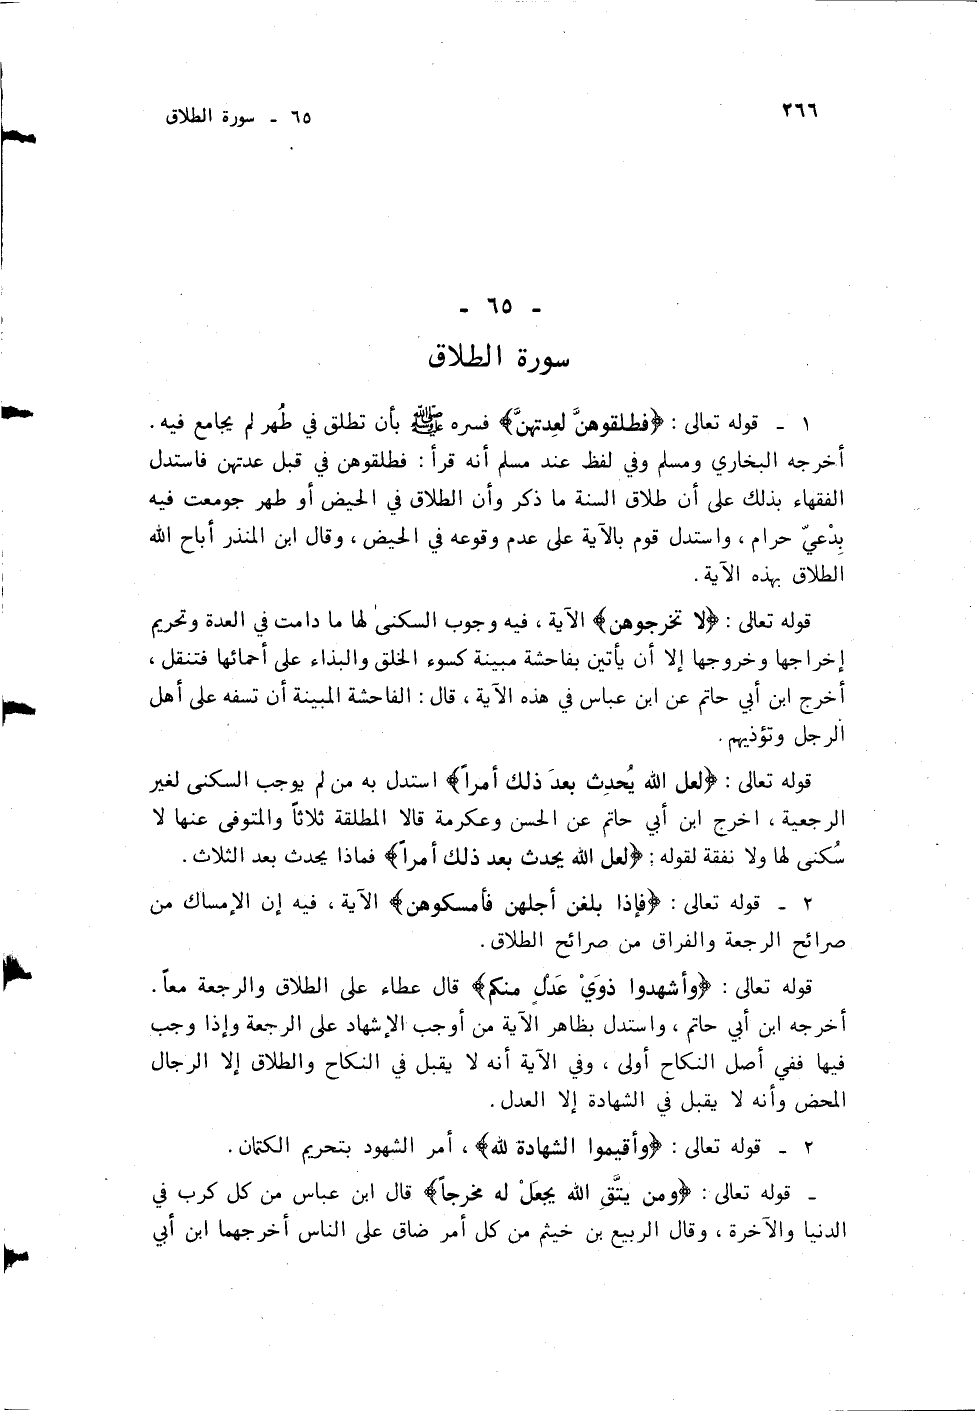 ٢٦٦
٦٥ - سورة الطلاق
- ٦٥ -
سورة الطلاق
١ - قوله تعالى : ﴿فطلقوهنَّ لعِدتهنَّ﴾ فسره ﷺ بأن تطلق في طُهر لم يجامع فيه .
أخرجه البخاري ومسلم وفي لفظ عند مسلم أنه قرأ : فطلقوهن في قبل عدتهن فاستدل
الفقهاء بذلك على أن طلاق السنة ما ذكر وأن الطلاق في الحيض أو طهر جومعت فيه
بِدْعيّ حرام ، واستدل قوم بالآية على عدم وقوعه في الحيض ، وقال ابن المنذر أباح الله
الطلاق بهذه الآية .
قوله تعالى : ﴿لا تخرجوهن﴾ الآية ، فيه وجوب السكنى لها ما دامت في العدة وتحريم
إخراجها وخروجها إلا أن يأتين بفاحشة مبينة كسوء الخلق والبذاء على أحمائها فتنقل ،
أخرج ابن أبي حاتم عن ابن عباس في هذه الآية ، قال : الفاحشة المبينة أن تسفه على أهل
الرجل وتؤذيهم .
قوله تعالى : ﴿لعل الله يُحدِث بعدَ ذلك أمراً﴾ استدل به من لم يوجب السكنى لغير
الرجعية ، اخرج ابن أبي حاتم عن الحسن وعكرمة قالا المطلقة ثلاثاً والمتوفى عنها لا
سُكنى لها ولا نفقة لقوله : ﴿لعل الله يحدث بعد ذلك أمراً﴾ فماذا يحدث بعد الثلاث .
٢ - قوله تعالى : ﴿فإذا بلغن أجلهن فأمسكوهن﴾ الآية ، فيه إن الإمساك من
صرائح الرجعة والفراق من صرائح الطلاق .
قوله تعالى : ﴿وأشهدوا ذوَيْ عَدْلٍ منكم﴾ قال عطاء على الطلاق والرجعة معاً .
أخرجه ابن أبي حاتم ، واستدل بظاهر الآية من أوجب الإشهاد على الرجعة وإذا وجب
فيها ففي أصل النكاح أولى ، وفي الآية أنه لا يقبل في النكاح والطلاق إلا الرجال
المحض وأنه لا يقبل في الشهادة إلا العدل .
٢ - قوله تعالى : ﴿وأقيموا الشهادة لله﴾ ، أمر الشهود بتحريم الكتمان .
- قوله تعالى : ﴿ومن يتَّقِ الله يجعَلْ له مخرجاً﴾ قال ابن عباس من كل كرب في
الدنيا والآخرة ، وقال الربيع بن خيثم من كل أمر ضاق على الناس أخرجهما ابن أبي